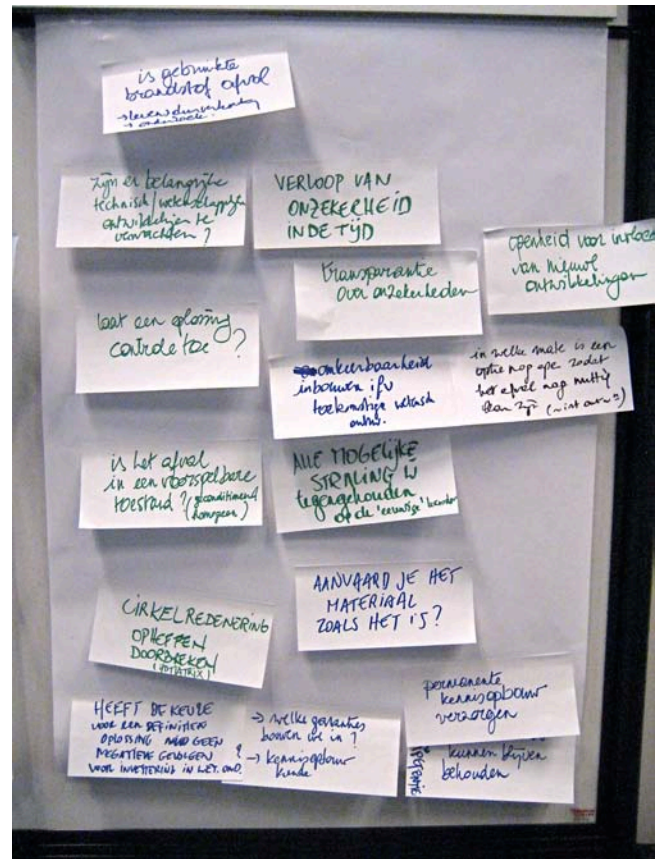 is gebruikte
brandstof afval
→ levensduurverhoging
→ onderzoek
zijn er belangrijke
technisch/wetenschappelijke
ontwikkelingen te
verwachten ?
VERLOOP VAN
ONZEKERHEID
IN DE TIJD
openheid voor
van nieuwe
ontwikkelingen
transparantie
over onzekerheden
laat een oplossing
controle toe ?
omkeerbaarheid
inbouwen ifv
toekomstige
in welke mate is een
optie nog open zodat
het afval nog nuttig
kan zijn
is het afval
in een voorspelbare
toestand ? (geconditioneerd
(homogeen)
ALLE MOGELIJKE
STRALING W
tegengehouden
op de 'eeuwige'
AANVAARD JE HET
MATERIAAL
ZOALS HET IS ?
CIRKELREDENERING
OPHEFFEN
DOORBREKEN
HEEFT DE KEUZE
VOOR EEN DEFINITIEVE
OPLOSSING GEEN
NEGATIEVE GEVOLGEN ?
VOOR INVESTERING IN WET. OND.
→ welke garanties
bouwen we in ?
→ kennisopbouw
permanente
kennisopbouw
verzorgen
kunnen blijven
behouden